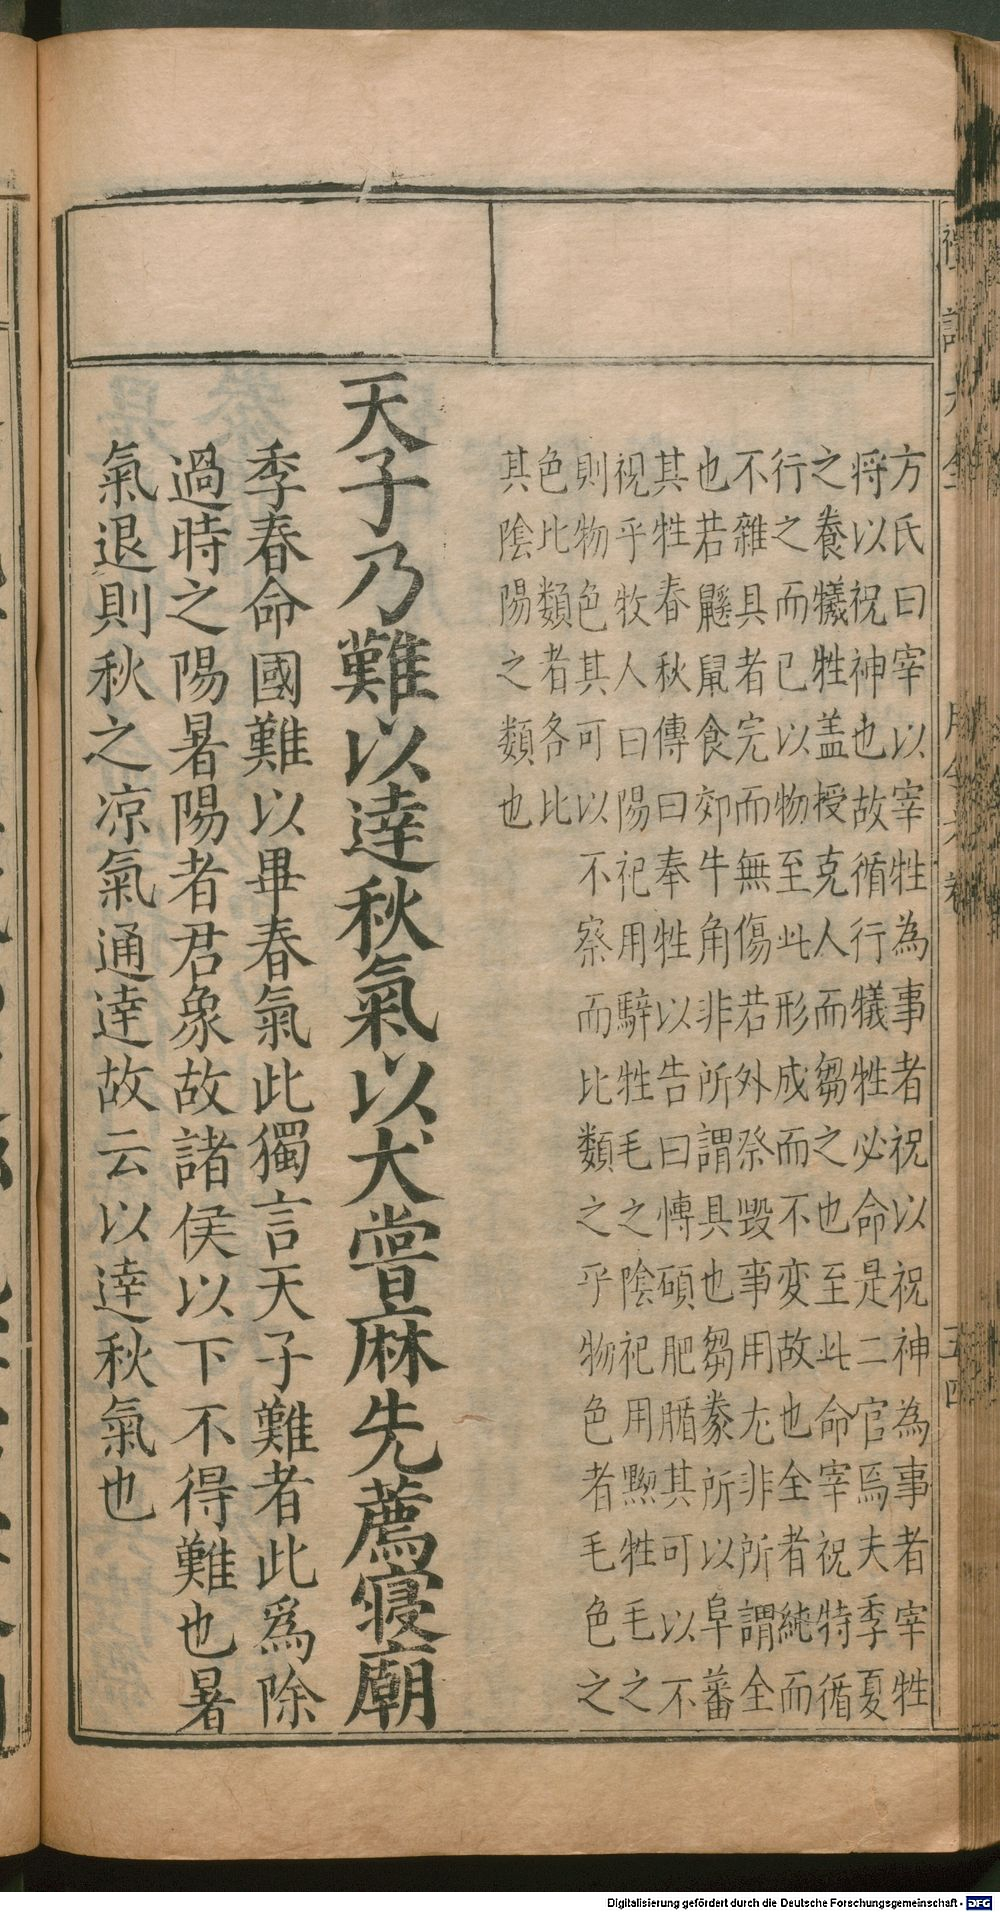 方氏曰宰以宰牲為事者祝以祝神為事者宰牲
将以祝神也故循行犧牲必命是二官焉夫季夏
之養犧牲盖授克人而芻之也至此命宰祝特循
行之而已以物至此形成而不変故也全者純而
不雜具者完而無傷若外祭毀事用尤非所謂全
也若鼷鼠食郊牛角非所謂具也芻豢所以阜蕃
其牲春秋傳曰奉牲以告曰愽碩肥腯其可以不
視乎牧人曰陽祀用騂牲毛之陰祀用黝牲毛之
則物色其可以不察而比類之乎物色者毛色之
色比類者各比
其陰陽之類也
天子乃難以達秋氣以犬嘗麻先薦寢廟
季春命國難以畢春氣此獨言天子難者此爲除
過時之陽暑陽者君象故諸侯以下不得難也暑
氣退則秋之凉氣通達故云以達秋氣也
Digitalisierung gefördert durch die Deutsche Forschungsgemeinschaft - DFG